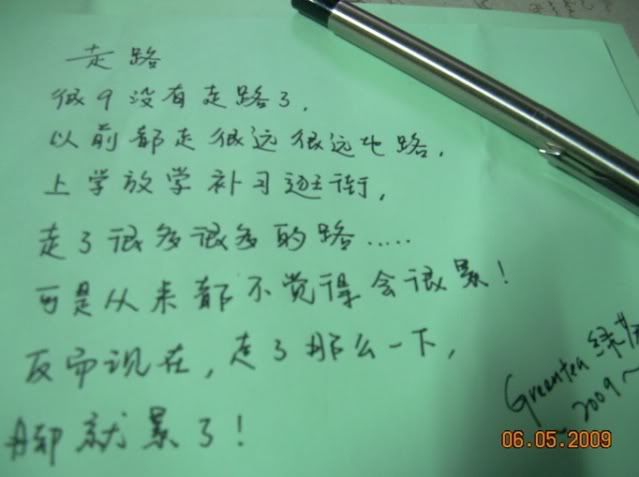 走路
很久没有走路了,
以前都走很远很远地路,
上学放学补习逛街,
走了很多很多的路.....
可是从来都不觉得会很累!
反而现在,走了那么一下,
脚就累了!
Greentea 绿茶
2009~
06.05.2009